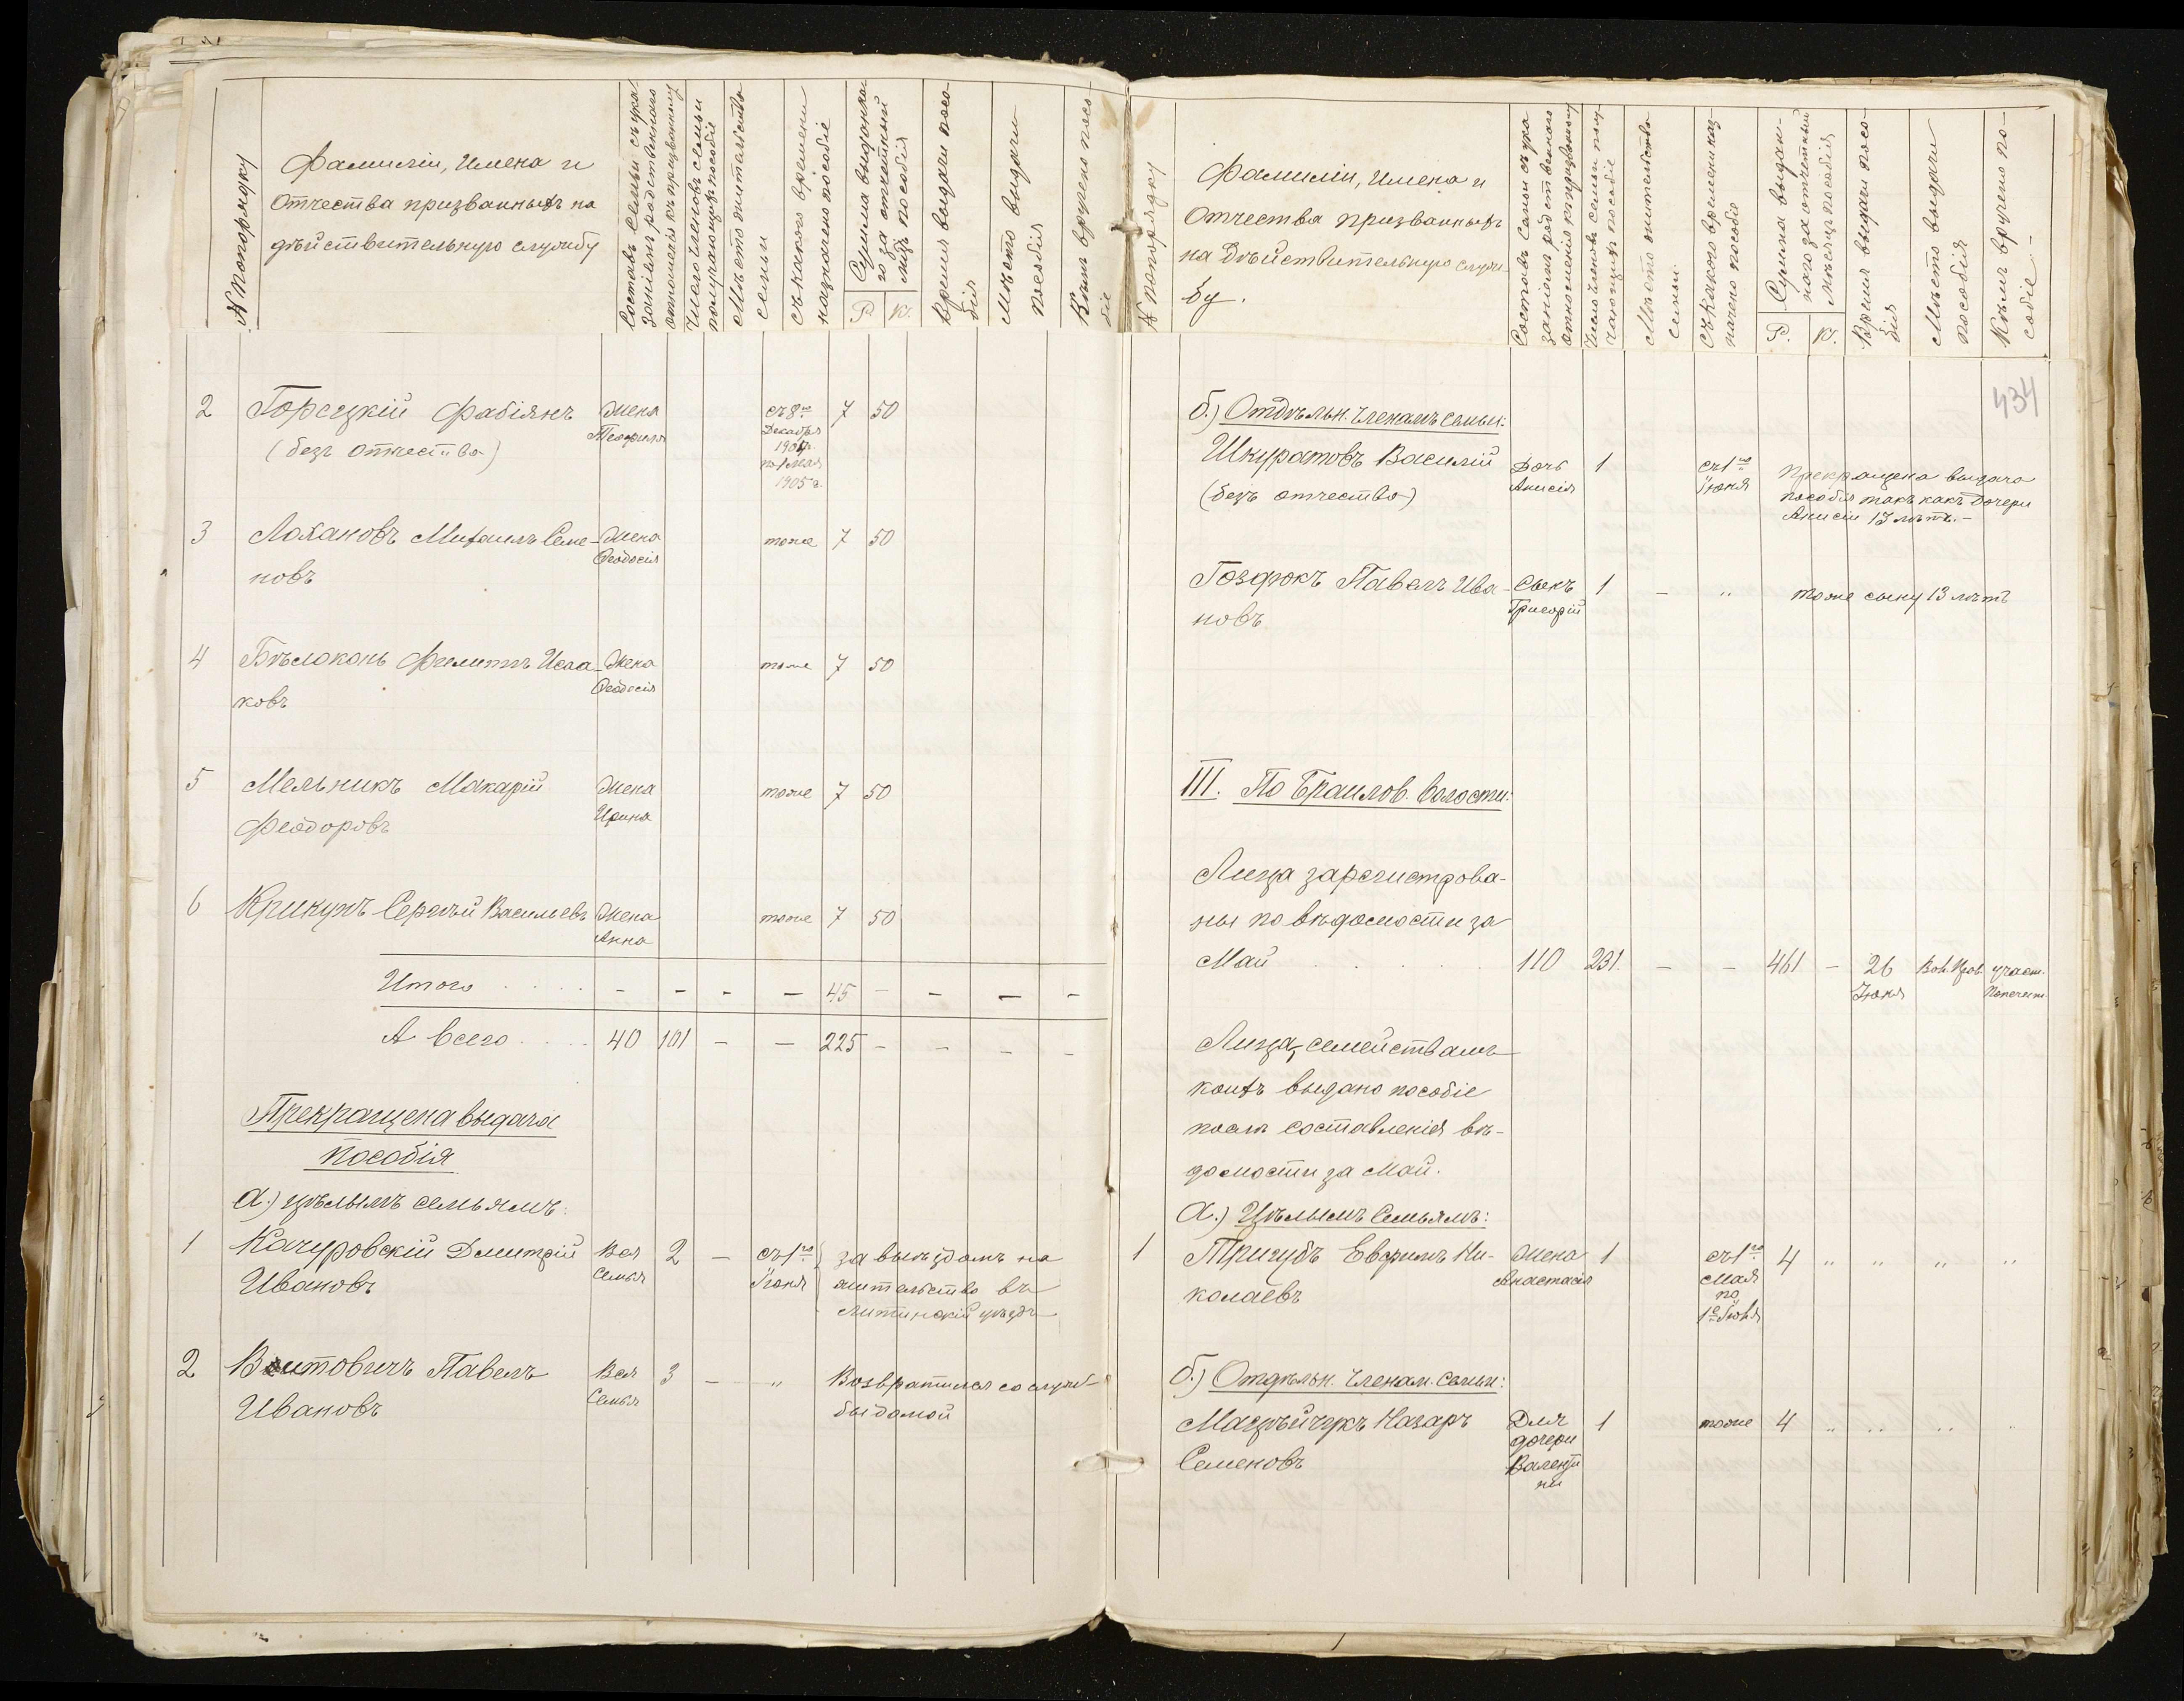 № по порядку
Фамиліи, Имена и
Отчества призванныхъ на
дѣйствительную службу
Составъ Семьи съ ука
заніемъ родственнаго
отношенія къ призванному
Число членовъ семьи
получающихъ пособіе
Мѣсто жительства
семьи
Съ какого времени
назначено пособіе
Сумма выданна
го за отчетный
мѣс. пособія
Р. К.
Время выдачи посо-
бія
Мѣсто выдачи
пособія
Кѣмъ вручено посо-
біе
2 Горецкій Фабіянъ Жена съ 8го 7 50
(безъ отчества) Теофилія Декабря
1904 г.
по 1 мая
1905 г.
3 Лохановъ Михаилъ Семе- Жена тоже 7 50
новъ Феодосія
4 Бѣлоконь Филиппъ Исаа- Жена тоже 7 50
ковъ Феодосія
5 Мельникъ Макарій Жена тоже 7 50
Феодоровъ Ирина
6 Крикунъ Сергѣй Васильевъ Жена тоже 7 50
Анна
Итого . . . . - - - - 45 - - - -
А всего . . . . 40 101 - - 225 - - - -
Прекращена выдача
пособія
а.) цѣлымъ семьямъ:
1 Качуровскій Дмитрій Вся 2 - съ 1го за выѣздомъ на
Ивановъ Семья Іюня жительство въ
Литинскій уѣздъ
2 Воитовичъ Павелъ Вся 3 - - „ Возвратился со служ-
Ивановъ Семья бы домой
№ по порядку
Фамиліи, Имена и
Отчества призванныхъ
на Дѣйствительную служ-
бу.
Составъ Семьи съ ука
заніемъ родственнаго
отношенія къ призванному
Число членовъ семьи полу
чающихъ пособіе
Мѣсто жительства
семьи.
Съ какого времени наз-
начено пособіе
Сумма выдан-
ного за отчетный
мѣсяцъ пособія
Р. К.
Время выдачи посо-
бія
Мѣсто выдачи
пособія
Кѣмъ вручено по-
собіе. -
434
б.) Отдѣльн. членамъ семьи:
Шкуратовъ Василій Дочь 1 съ 1го Прекращена выдача
(безъ отчества) Анисія Іюня пособія такъ какъ дочери
Анисіи 13 лѣтъ. -
Гозфюкъ Павелъ Ива- Сынъ 1 - „ тоже сыну 13 лѣтъ
новъ Григорій
III. По Браилов. волости:
Лица зарегистрова-
ны по вѣдомости за
Май . . . . . 110 231. - - 461 - 26 участ.
Іюня Попечит.
Лица, семействамъ
коихъ выдано пособіе
послѣ составленія вѣ-
домости за май.
а.) Цѣлымъ Семьямъ:
1 Тригубъ Евфимъ Ни- Жена 1 съ 1го 4 „ „ „ „
колаевъ Анастасія мая
по
1е Іюня
б.) Отдѣльн. членам. семьи:
Мацѣйчукъ Назаръ Для 1 тоже 4 „ „ „ „
Семеновъ дочери
Валенти
ны